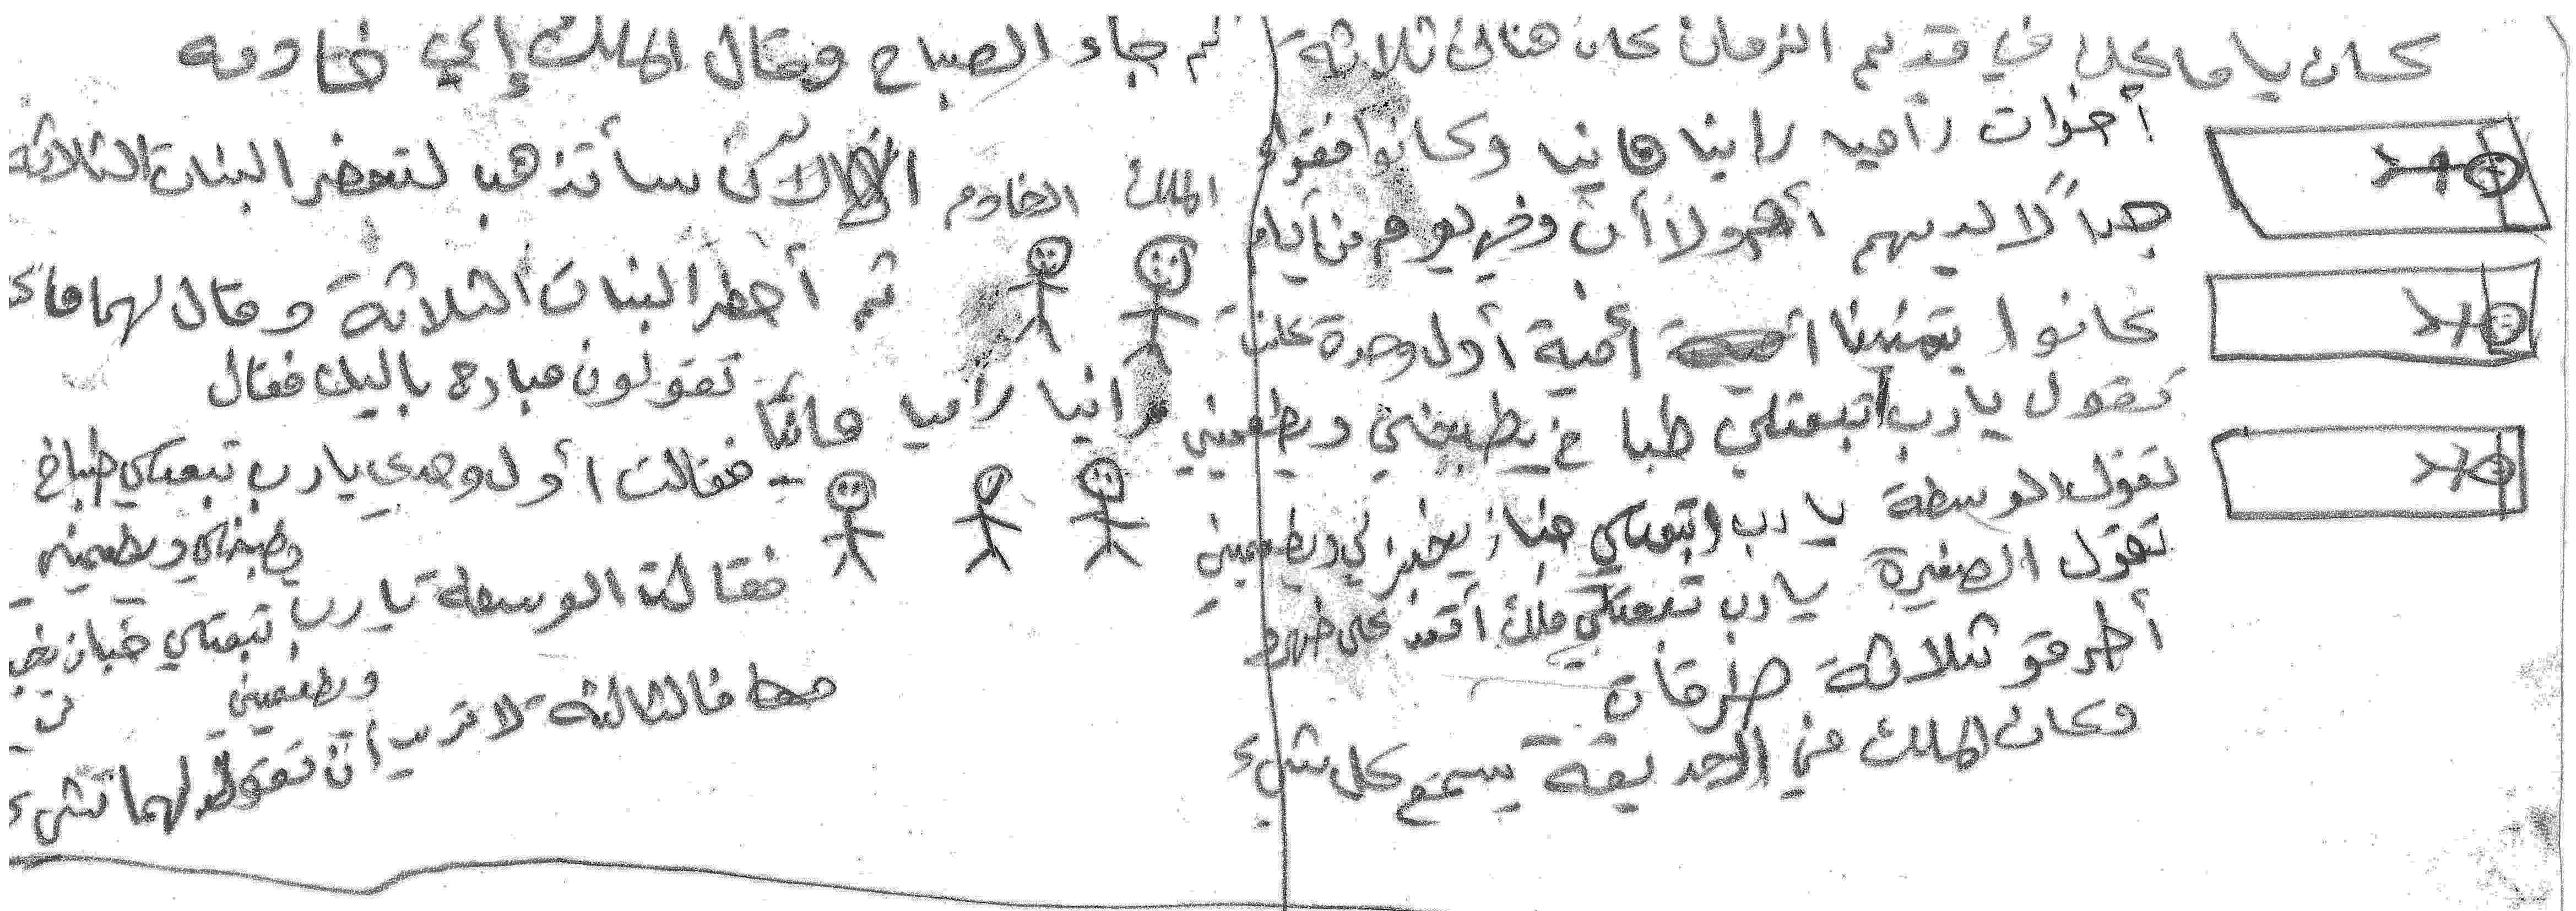 كان يا ما كان في قديم الزمان كان هنالك ثلاثة
أخوات راميه رانيا هانيا وكانوا فقراء
جداً لا لديهم أهم ولا أن وفي يوم من أيام
كانوا يتمننا أمنية أول وحدة كانت
تقول يا رب اتبعتلي طباخ يطبخلي ويطعميني
تقول الوسطة يا رب اتبعتلي خباز يخبزلي ويطعميني
تقول الصغيرة يا رب تبعتلي ملك أقعد على ظهره
أطرقو ثلاثة طرقات
وكان الملك في الحديقة يسمع كل شيء
ثم جاء الصباح وقال الملك إلي خادمه
الأن سأتذهب لتحضر البنات الثلاثه
الملك الخادم
ثم أحظر البنات الثلاثة وقال لهما ما كـ
تقولون مبارح باليل فقال
رانيا راميا هانيا
فقالت أول وحدى يا رب تبعتلي طباخ
يطبخلي ويطعميني
فقالت الوسطة يا رب تبعتلي خباز يخبز
لي ويطعميني
فا الثالثه لا تريد أن تقول لهما شيء